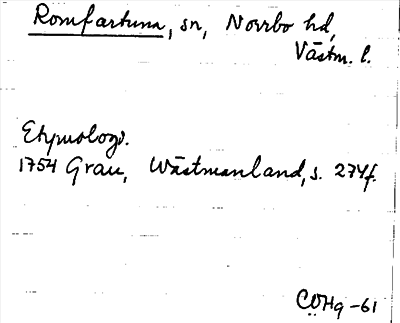 Romfartuna, sn, Norrbo hd,
Västm. l.
Etymologi.
1754 Grau, Wästmanland, s. 274f.
COHg -61